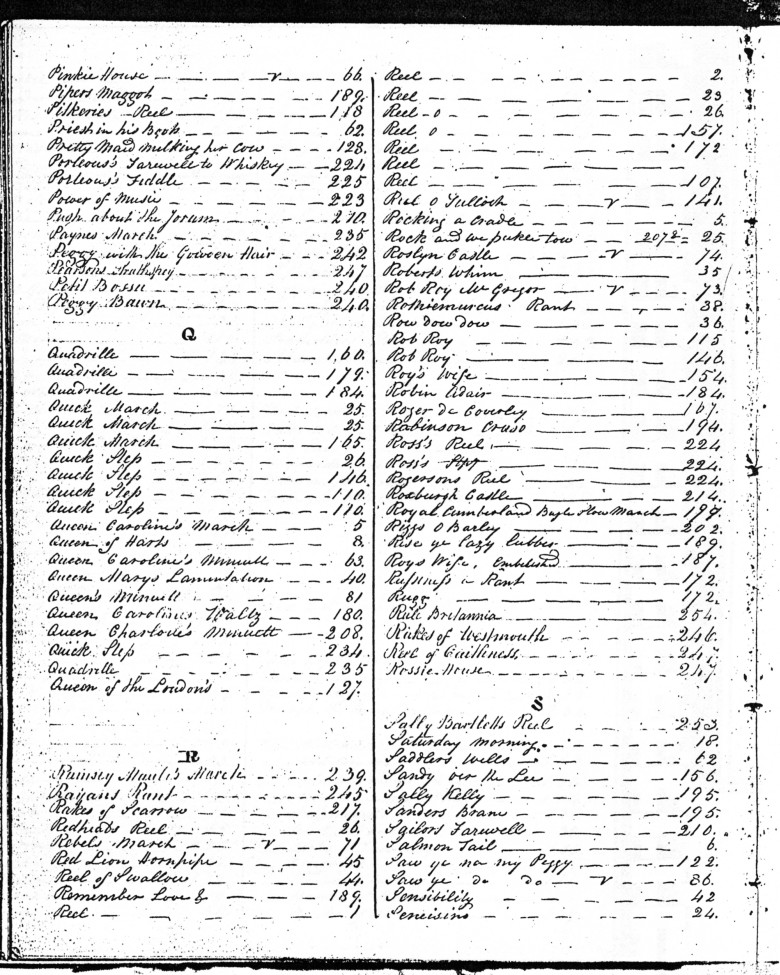 Pinkie House - v - 66.
Pipers Maggoh - 189.
Pilkeries Reel - 118
Priest in his Book - 62.
Pretty Maid milking her Cow - 128.
Porteous's Farewell to Whiskey - 224
Porteous's Fiddle - 225
Power of Music - 223
Push about the Jorum - 210.
Paynes March - 235
Peggy with the Gowden Hair - 242
Pearsons Strathspey - 247
Petit Bossu - 240
Peggy Bawn - 240.
Q
Quadrille - 160.
Quadrille - 179.
Quadrille - 184.
Quick March - 25.
Quick March - 25.
Quick March - 165.
Quick Step - 26.
Quick Step - 146.
Quick Step - 110.
Quick Step - 110.
Queen Caroline's March - 5
Queen of Harts - 8.
Queen Caroline's Minuett - 63.
Queen Marys Lamentation - 40.
Queen's Minuett - 81
Queen Carolines Waltz - 180.
Queen Charlotte's Minuett - 208.
Quick Step - 234
Quadrille - 235
Queen of the London's - 127.
R
Ramsey Maule's March - 239.
Rayans Rant - 245
Rakes of Scarrow - 217.
Redheads Reel - 26.
Rebels March - v - 71
Red Lion Hornpipe - 45
Reel of Swallow - 44.
Remember Love & - 189.
Reel - 1
Reel - 2.
Reel - 23
Reel - o - 26.
Reel o - 157.
Reel - 172
Reel -
Reel - 107.
Reel o Tulloch - v - 141.
Rocking a Cradle - 5.
Rock and wee puckle tow - 207 & 25.
Roslyn Castle - v - 74.
Roberts Whim - 35
Rob Roy McGregor - v - 73.
Rothiemurcus Rant - 38.
Row dow dow - 36.
Rob Roy - 115
Rob Roy - 146.
Roy's Wife - 154.
Robin Adair - 184.
Roger de Coverley - 167.
Rabinson Cruso - 194.
Ross's Reel - 224
Ross's Spy - 224.
Rogersons Reel - 224.
Roxburgh Castle - 214.
Royal Cumberland Bugle Slow March - 197.
Riggs O Barley - 202.
Rise ye lazy lubber - 189.
Roys Wife, embelished - 187.
Rant - 172.
Rugg - 172.
Rule Britannia - 254.
Rakes of Westmouth - 246.
Reel of Caithness - 247.
Rossie House - 247.
S
Sally Bartletts Reel - 253.
Saturday Morning - 18.
Saddlers Wells - 62
Sandy ovr the Lee - 156.
Sally Kelly - 195.
Sanders Brane - 195.
Sailors Farewell - 210.
Salmon Tail - 6.
Saw ye na my Peggy - 122.
Saw ye do do - v - 86.
Sensibility - 42
- 24.